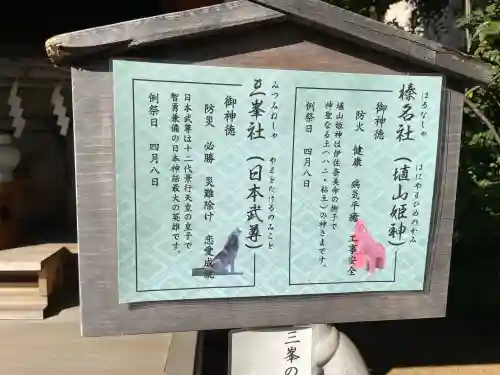 榛名社（埴山姫神）
はるなしゃ　はにやまひめのかみ
御神徳
防火　健康　病気平癒　工事安全
埴山姫神は伊佐奈美命の御子で
神聖なる土（ハニ・粘土）の神さまです。
例祭日　四月八日
三峯社（日本武尊）
みつみねしゃ　やまとたけるのみこと
御神徳
防災　必勝　災難除け　恋愛成就
日本武尊は十二代景行天皇の皇子で
智勇兼備の日本神話最大の英雄です。
例祭日　四月八日
三峯の